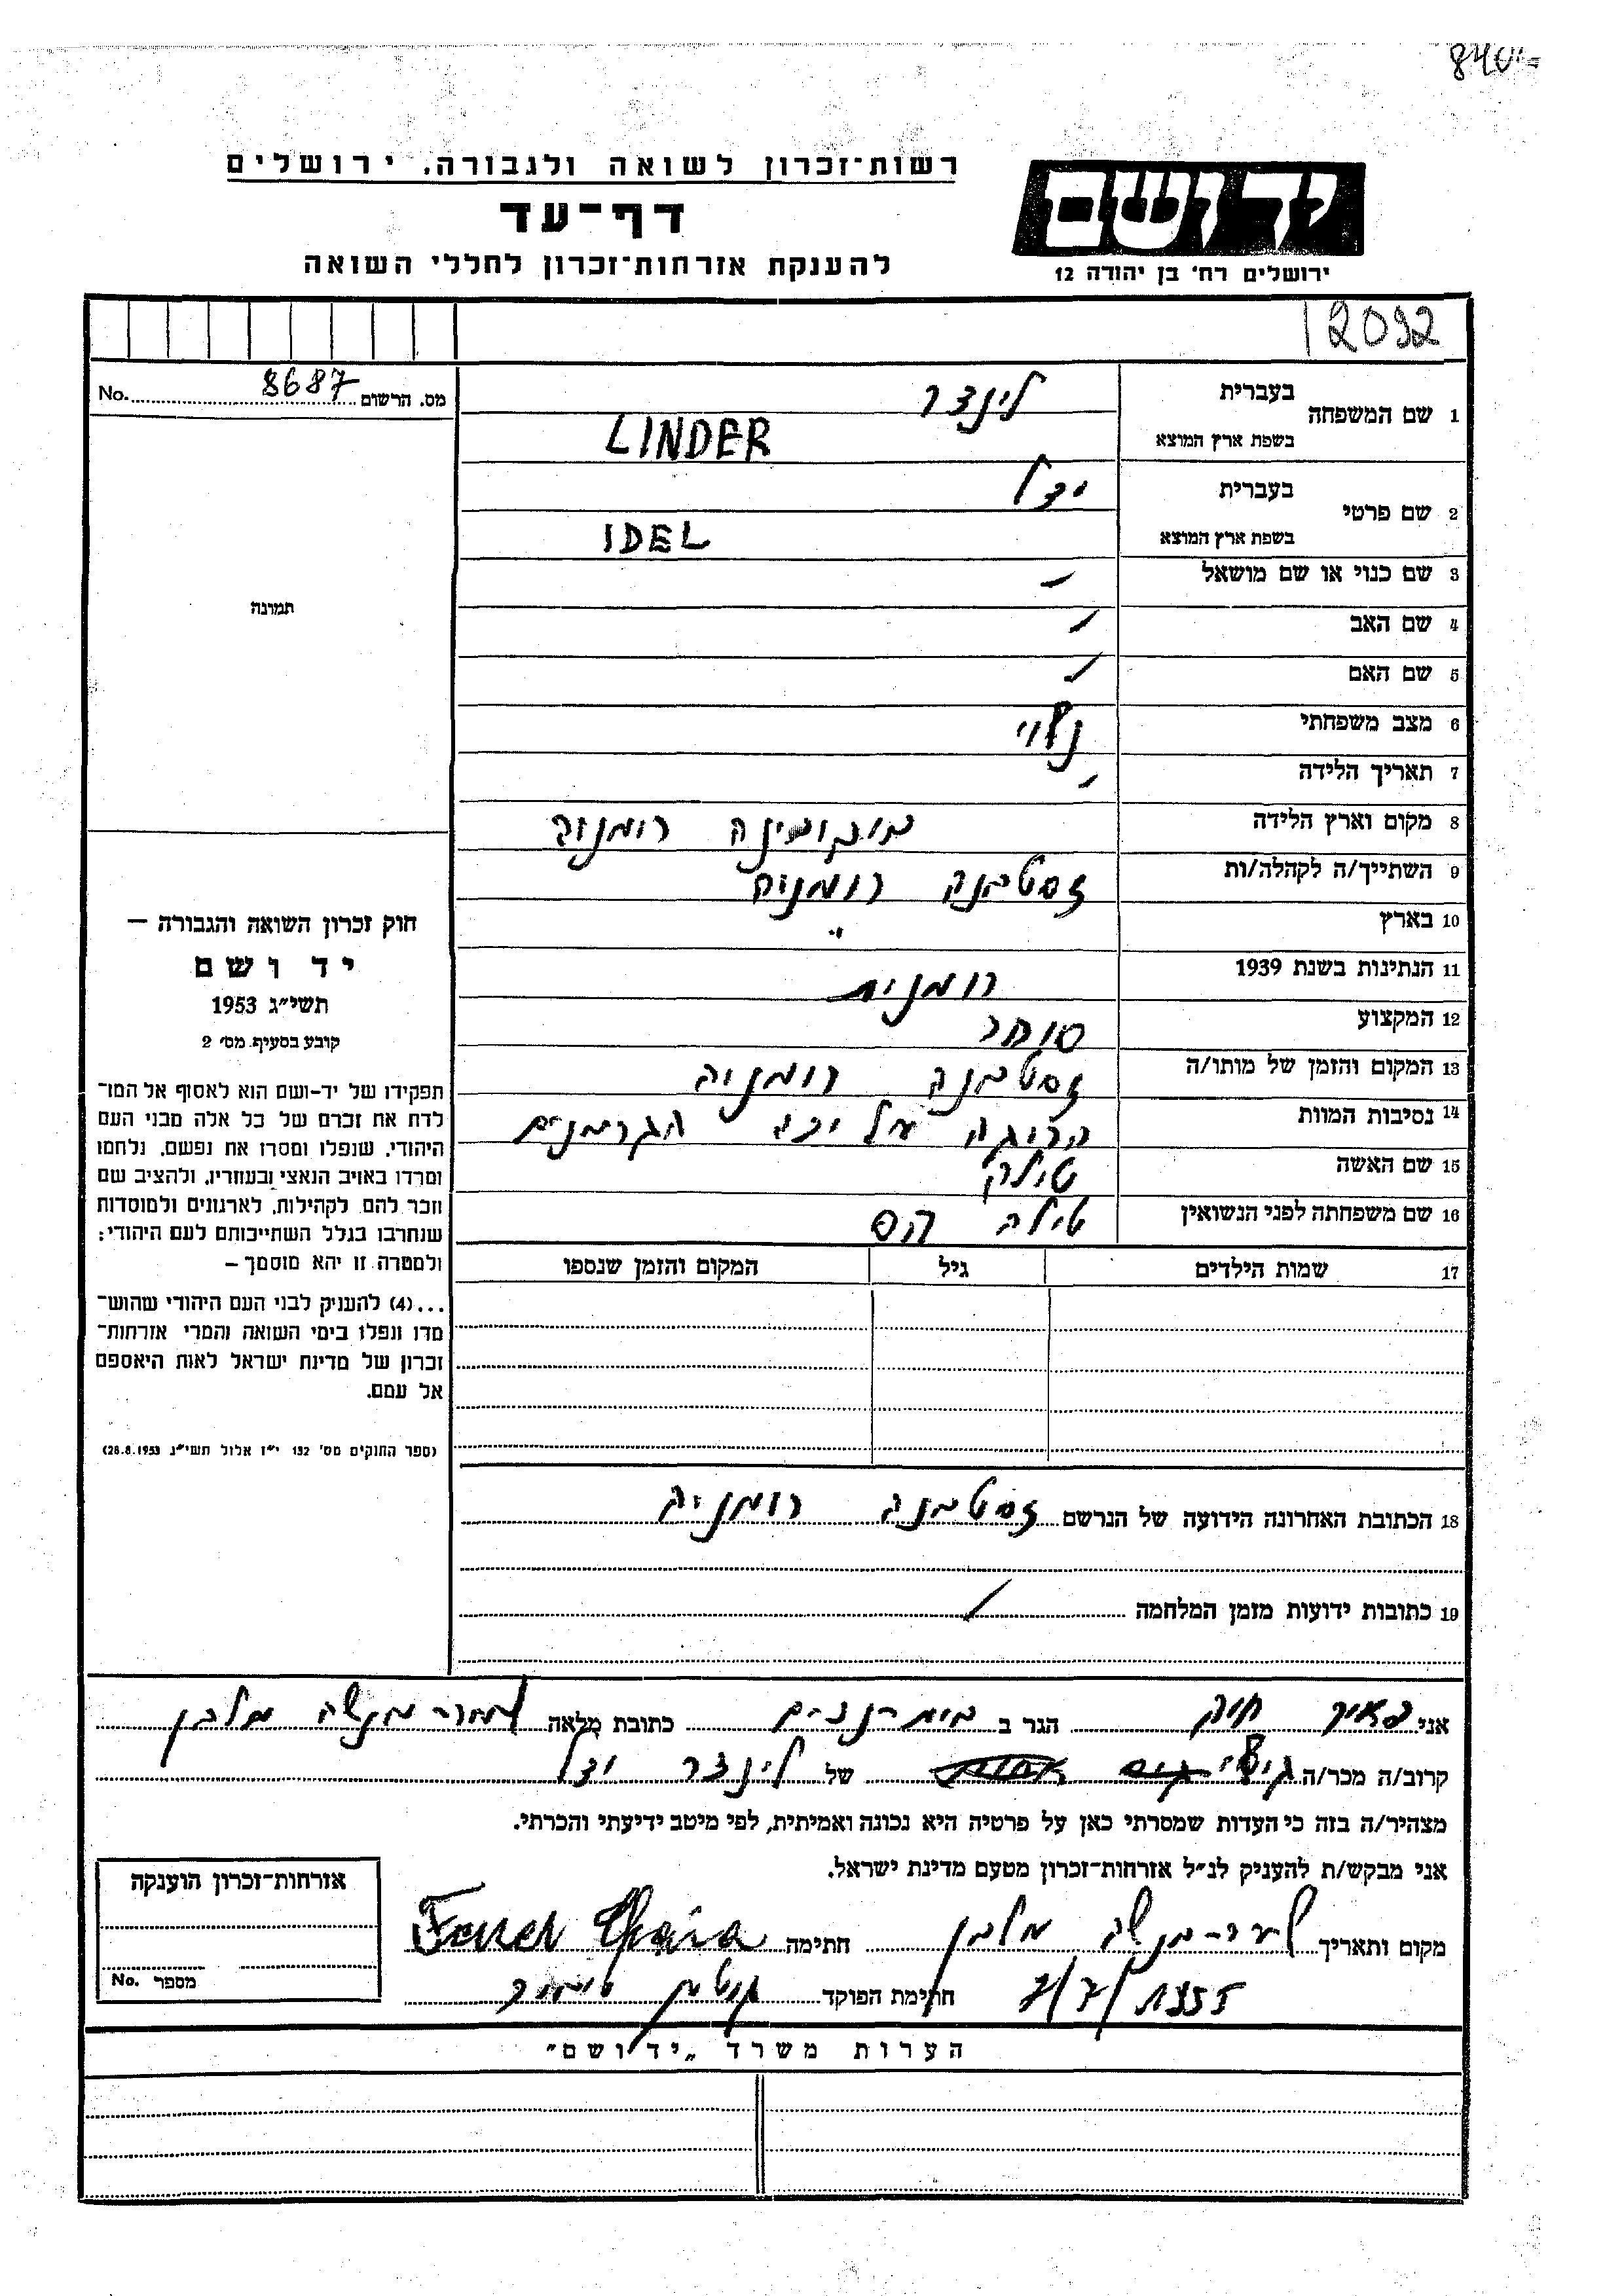 840
רשות־זכרון לשואה ולגבורה. ירושלים
דף־עד
להענקת אזרחות־זכרון לחללי השואה
יד ושם
ירושלים רח' בן יהודה 12
12092
מס. הרשום 8687 No.
1 שם המשפחה בעברית לינדר
בשפת ארץ המוצא LINDER
2 שם פרטי בעברית ידל
בשפת ארץ המוצא IDEL
3 שם כנוי או שם מושאל —
תמונה
4 שם האב
5 שם האם
6 מצב משפחתי נשוי
7 תאריך הלידה
8 מקום וארץ הלידה בוקובינה רומניה
9 השתייך/ה לקהלה/ות זסטבנה רומניה
10 בארץ "
11 הנתינות בשנת 1939 רומנית
12 המקצוע סוחר
13 המקום והזמן של מותו/ה זסטבנה רומניה
14 נסיבות המוות הרוגה על ידי הגרמנים
15 שם האשה טילה
16 שם משפחתה לפני הנשואין טילה הס
17 שמות הילדים גיל המקום והזמן שנספו
חוק זכרון השואה והגבורה —
יד ושם
תשי"ג 1953
קובע בסעיף מס' 2
תפקידו של יד-ושם הוא לאסוף אל המו־
לדת את זכרם של כל אלה מבני העם
היהודי, שנפלו ומסרו את נפשם, נלחמו
ומרדו באויב הנאצי ובעוזריו, ולהציב שם
וזכר להם לקהילות, לארגונים ולמוסדות
שנחרבו בגלל השתייכותם לעם היהודי;
ולמטרה זו יהא מוסמך —
...(4) להעניק לבני העם היהודי שהוש־
מדו ונפלו בימי השואה והמרי אזרחות־
זכרון של מדינת ישראל לאות היאספם
אל עמם.
(ספר החוקים מס' 132 י"ז אלול תשי"ג 28.8.1953)
18 הכתובת האחרונה הידועה של הנרשם זסטבנה רומניה
19 כתובות ידועות מזמן המלחמה
אני חיה הגר ב כתובת מלאה מלבן
קרוב/ה מכר/ה גיסי של לינדר ידל
מצהיר/ה בזה כי העדות שמסרתי כאן על פרטיה היא נכונה ואמיתית, לפי מיטב ידיעתי והכרתי.
אני מבקש/ת להעניק לנ"ל אזרחות־זכרון מטעם מדינת ישראל.
מקום ותאריך מלבן חתימה
7/7/1955 חתימת הפוקד
אזרחות־זכרון הוענקה
מספר No.
הערות משרד „יד ושם"